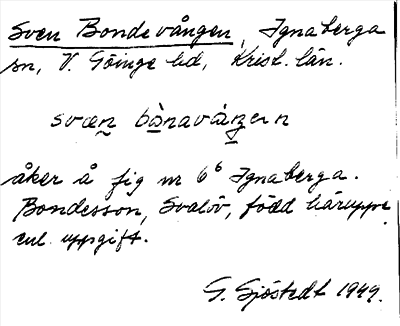 Sven Bondevången, Ignaberga
sn, V. Göinge hd, Krist. län.
svæn bònavåŋen
åker å fig nr 6⁶ Ignaberga.
Bondesson, Svalöv, född häruppe
enl. uppgift.
G. Sjöstedt 1949.